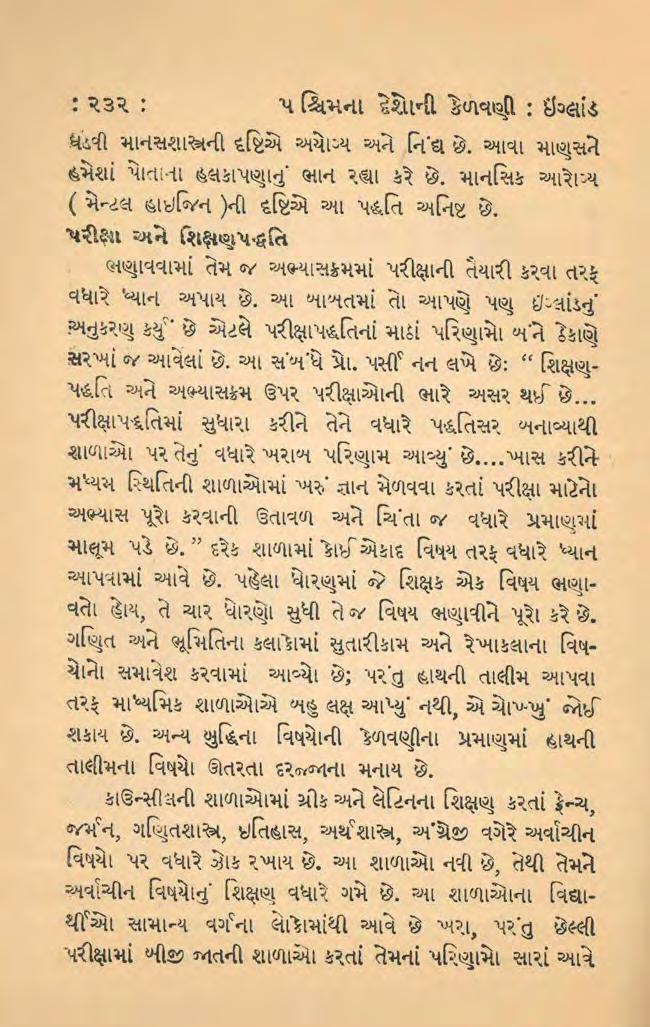 : ૨૩૨ : પશ્ચિમના દેશોની કેળવણી : ઇંગ્લાંડ
ઘડવી માનસશાસ્ત્રની દૃષ્ટિએ અયોગ્ય અને નિંદ્ય છે. આવા માણસને
હમેશાં પોતાના હલકાપણાનું ભાન રહ્યા કરે છે. માનસિક આરોગ્ય
( મેન્ટલ હાઇજિન )ની દૃષ્ટિએ આ પદ્ધતિ અનિષ્ટ છે.
પરીક્ષા અને શિક્ષણપદ્ધતિ
ભણાવવામાં તેમ જ અભ્યાસક્રમમાં પરીક્ષાની તૈયારી કરવા તરફ
વધારે ધ્યાન અપાય છે. આ બાબતમાં તો આપણે પણ ઇંગ્લાંડનું
અનુકરણ કર્યું છે એટલે પરીક્ષાપદ્ધતિનાં માઠાં પરિણામો બંને ઠેકાણે
સરખાં જ આવેલાં છે. આ સંબંધે પ્રો. પર્સી નન લખે છેઃ “ શિક્ષણ-
પદ્ધતિ અને અભ્યાસક્રમ ઉપર પરીક્ષાઓની ભારે અસર થઈ છે...
પરીક્ષાપદ્ધતિમાં સુધારા કરીને તેને વધારે પદ્ધતિસર બનાવ્યાથી
શાળાઓ પર તેનું વધારે ખરાબ પરિણામ આવ્યું છે....ખાસ કરીને
મધ્યમ સ્થિતિની શાળાઓમાં ખરું જ્ઞાન મેળવવા કરતાં પરીક્ષા માટેનો
અભ્યાસ પૂરો કરવાની ઉતાવળ અને ચિંતા જ વધારે પ્રમાણમાં
માલૂમ પડે છે. ” દરેક શાળામાં કોઈ એકાદ વિષય તરફ વધારે ધ્યાન
આપવામાં આવે છે. પહેલા ધોરણમાં જે શિક્ષક એક વિષય ભણા-
વતો હોય, તે ચાર ધોરણો સુધી તે જ વિષય ભણાવીને પૂરો કરે છે.
ગણિત અને ભૂમિતિના કલાકોમાં સુતારીકામ અને રેખાકલાના વિષ-
યોનો સમાવેશ કરવામાં આવ્યો છે; પરંતુ હાથની તાલીમ આપવા
તરફ માધ્યમિક શાળાઓએ બહુ લક્ષ આપ્યું નથી, એ ચોખ્ખું જોઈ
શકાય છે. અન્ય બુદ્ધિના વિષયોની કેળવણીના પ્રમાણમાં હાથની
તાલીમના વિષયો ઊતરતા દરજ્જાના મનાય છે.
કાઉન્સીલની શાળાઓમાં ગ્રીક અને લેટિનના શિક્ષણ કરતાં ફ્રેન્ચ,
જર્મન, ગણિતશાસ્ત્ર, ઇતિહાસ, અર્થશાસ્ત્ર, અંગ્રેજી વગેરે અર્વાચીન
વિષયો પર વધારે ઝોક રખાય છે. આ શાળાઓ નવી છે, તેથી તેમને
અર્વાચીન વિષયોનું શિક્ષણ વધારે ગમે છે. આ શાળાઓના વિદ્યા-
ર્થીઓ સામાન્ય વર્ગના લોકોમાંથી આવે છે ખરા, પરંતુ છેલ્લી
પરીક્ષામાં બીજી જાતની શાળાઓ કરતાં તેમનાં પરિણામો સારાં આવે